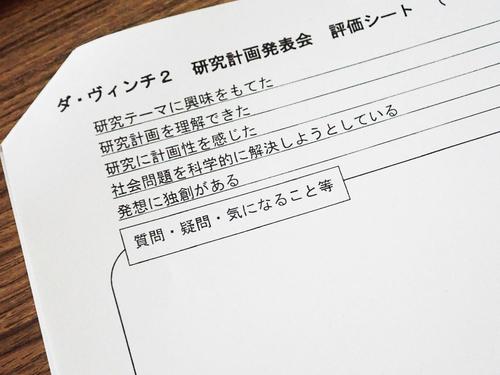 ダ・ヴィンチ2 研究計画発表会 評価シート (
研究テーマに興味をもてた
研究計画を理解できた
研究に計画性を感じた
社会問題を科学的に解決しようとしている
発想に独創がある
質問・疑問・気になること等